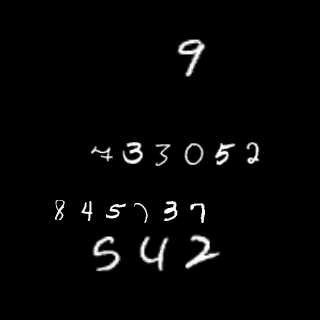 9
733052
845737
542